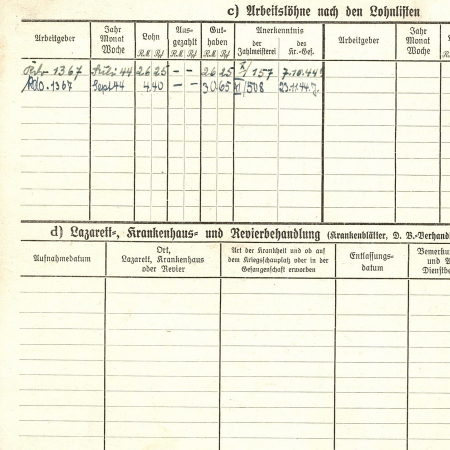 c) Arbeitslöhne nach den Lohnlisten
Arbeitgeber
Jahr
Monat
Woche
Lohn
RM Pf
Aus-
gezahlt
RM Pf
Gut-
haben
RM Pf
Anerkenntnis
der
Zahlmeisterei
des
Kr.-Gef.
Arbeitgeber
Jahr
Monat
Woche
1367 44 26 25 – – 26 25 /157 7.10.44
1367 Sept 44 4 40 – – 30 65 XI/508 23.11.44.
d) Lazarett-, Krankenhaus- und Revierbehandlung (Krankenblätter, D. B.-Verhandl
Aufnahmedatum
Ort,
Lazarett, Krankenhaus
oder Revier
Art der Krankheit und ob auf
dem Kriegsschauplatz oder in der
Gefangenschaft erworben
Entlassungs-
datum
Bemerku
und A
Dienstbe